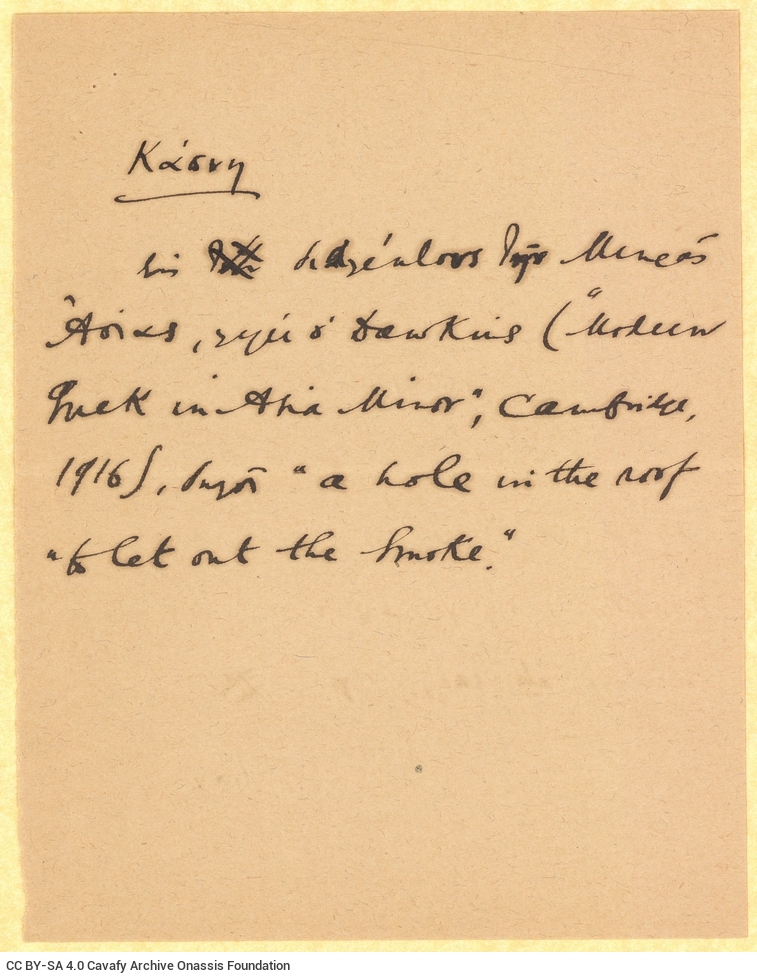 Κάπνη
Εἰς διαλέκτους τῆς Μικρᾶς
Ἀσίας, λέγει ὁ Dawkins ("Modern
Greek in Asia Minor", Cambridge,
1916), δηλοῖ "a hole in the roof
"to let out the smoke."
CC BY-SA 4.0 Cavafy Archive Onassis Foundation